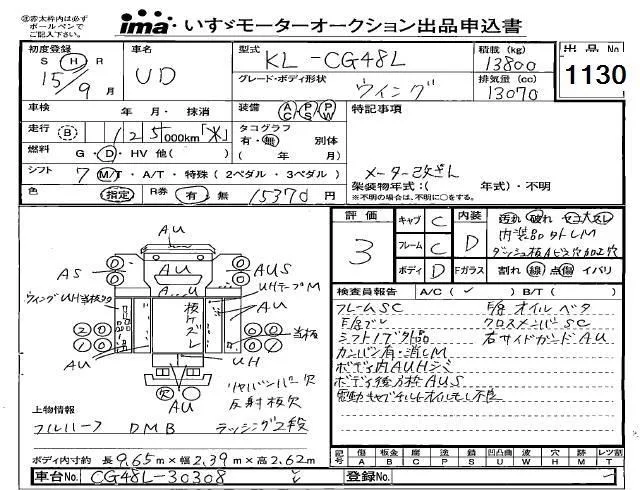 ㊟赤太枠内は必ず
ボールペンで
ご記入下さい。
ima いすゞモーターオークション出品申込書
初度登録 車名 型式 積載 (kg) 出品No
S H R
15年 9月 UD KL-CG48L 13800 1130
グレード・ボディ形状 排気量 (cc)
ウイング 13070
車検 年 月・ 抹消 装備 AC PS PW 特記事項
走行 B 125,000km「不」 タコグラフ
有・無 別体
燃料 G・D・HV 他( ) ( 年 月)
シフト 7 M/T・A/T・特殊(2ペダル・3ペダル) メーター改ざし
色 指定 R券 有・無 15370円 架装物年式:( 年式)・不明
※不明の場合は、不明に○をする。
評価 3
キャブ C 内装 D
フレーム C
ボディ D Fガラス
汚れ 破れ ヤコゲスレ
内装品タレM
ダッシュ板Aビス穴加工穴
割れ 線 点傷 イバリ
検査員報告 A/C( ✓ ) B/T( )
フレームSC
シフトノブ欠品
カンバン有・消しM
ボディ内AUHシミ
ボディ後方枠AUS
電動キャブチルトオイルモレ不良
F/Rオイルベタ
クロスメンバーSC
右サイドガードAU
AU
AS AU AUS
UHテープM
ウイングUH当板多々
A U
板ケズレ AU
当板
UH
AU AU
リヤバンパー欠
反射板欠
上物情報
フルハーフ DMB ラッシング2段
ボディ内寸約 長9.65m×幅2.39m×高2.62m
車台No. CG48L-30308 登録No.
記号 傷A 板金B 腐C 塗P 錆S 凹凸曲U 波W 穴H 跡M レツ割T